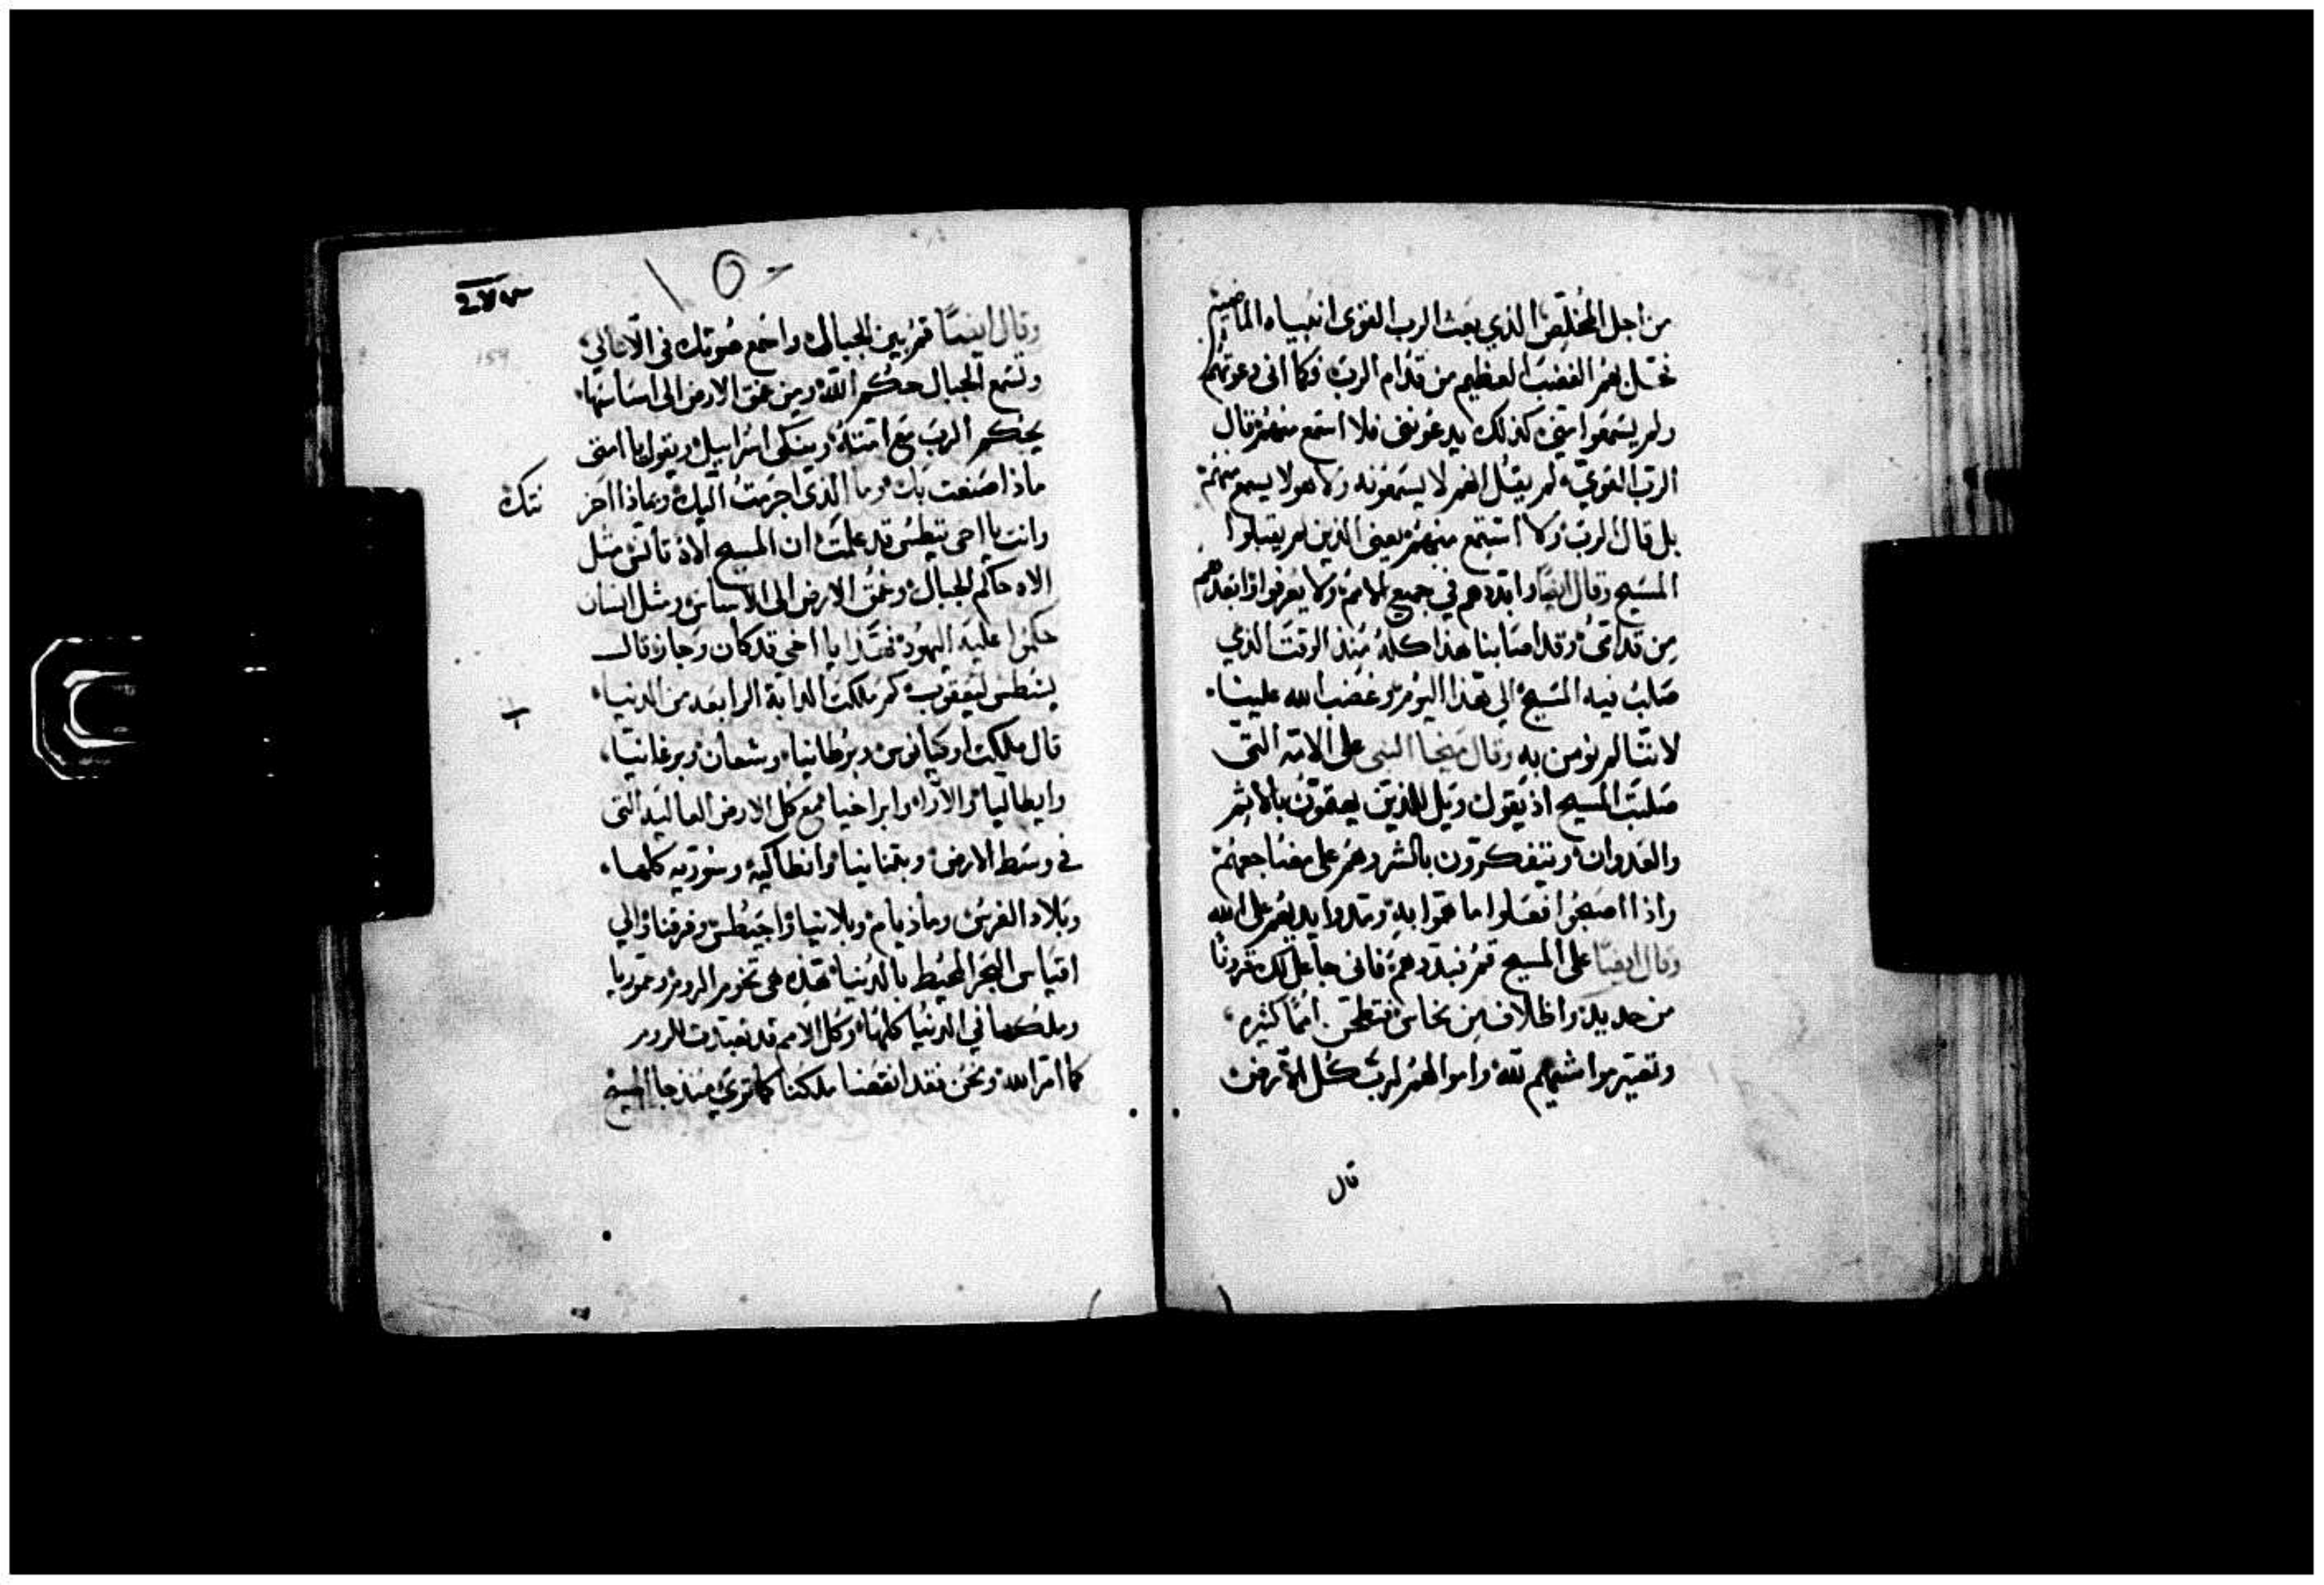 من اجل المخلص الذي بعث الرب القوى انبياه الماضيين
فحل بهم الغضب العظيم من قدام الرب وكما انى دعوتهم
ولم يسمعوا مني كذلك يدعونني فلا اسمع منهم قال
الرب القوي لم يقبل انهم لا يسمعونه ولا هو لا يسمع منهم
بل قال الرب ولا استمع منهم يعنى الذين لم يقبلوا
المسيح وقال ايضا وابددهم في جميع الامم ولا يعرفوا ابعدهم
من قدامي وقد اصابنا هذا كله منذ الوقت الذي
صلب فيه المسيح الى هذا اليوم وغضب الله علينا
لاننا لم نومن به وقال ميخا النبى على الامة التى
صلبت المسيح اذ يقول ويل للذين يهمون بالاثم
والعدوان ويتفكرون بالشر وهم على مضاجعهم
واذا اصبحوا فعلوا ما هموا به ومدوا يديهم على الله
وقال ايضا على المسيح قم فبددهم فانى جاعل لك قرونا
من حديد واظلاف من نحاس فتطحن امما كثيره
وتصير مواشيهم لله واموالهم لرب كل الارض
قال
وقال ايضا قم بين الجبال واسمع صوتك فى الاعالي
وتسمع الجبال حكم الله ومن عمق الارض الى اساساتها
يحكم الرب مع امته ويبكى اسراييل ويقول يا امتى
ماذا صنعت بك وما الذى اجرمت اليك وبماذا اخز
نتك
وانت يا اخى يسطس قد علمت ان المسيح الاه تانس مثل
الاه حاكم الجبال وعمق الارض الى الاساس ومثل انسان
حكموا عليه اليهود فهذا يا اخي قد كان وجاز قال
يسطس ليعقوب كم ملكت الدابة الرابعه من الدنيا
قال ملكت اوكيانوس وبرطانيا وشعان وبرغانيا
وايطاليا والاراه وابراخيا مع كل الارض العاليه التى
في وسط الارض وبتنانيا وانطاكية وسورية كلها
وبلاد الفرس وماذيام وبلانيا واجبطس وفرقنا والي
اقياس البحر المحيط بالدنيا هذه هى تخوم الروم وعموريا
وملكها في الدنيا كلها وكل الامم قد تعبدت للروم
كما امر الله ونحن فقد انقضا ملكنا كما ترى منذ جا المسيح